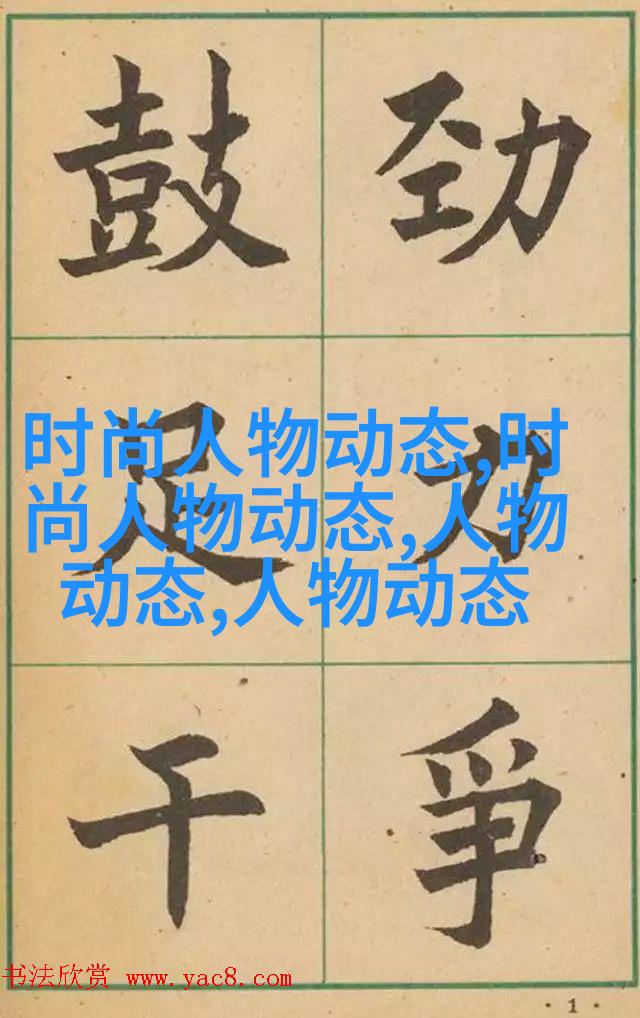 鼓足干
劲力爭
时尚人物动态,时
尚人物动态,人物
动态,人物动态
书法欣赏 www.yac8.com
·1·